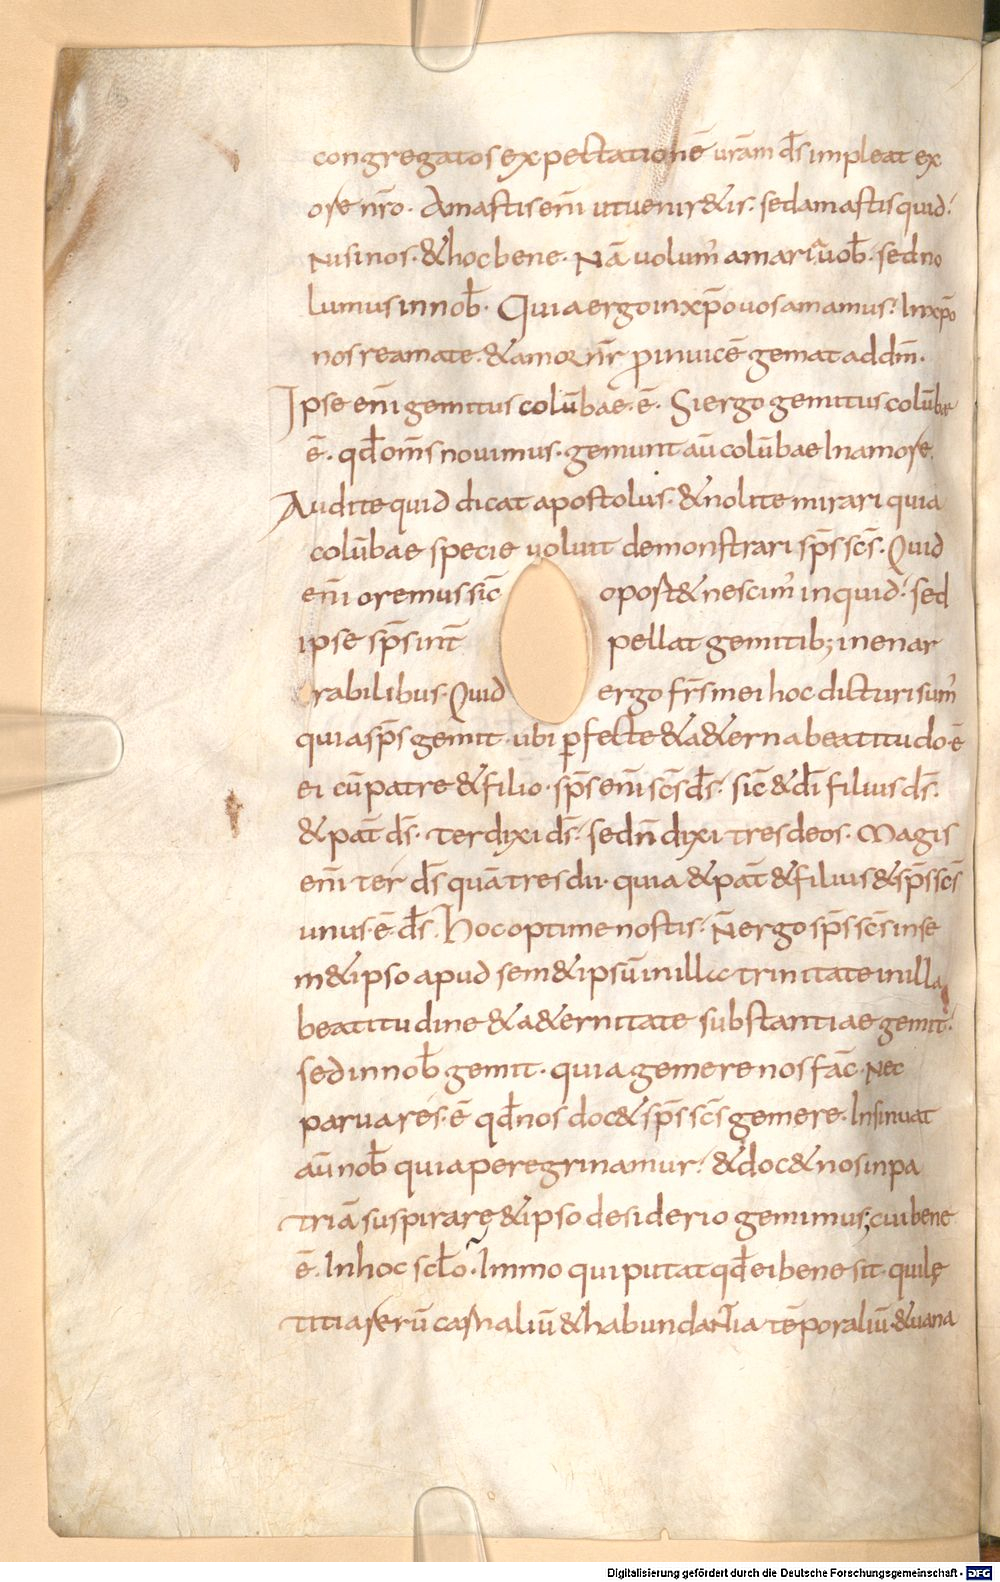 congregatos expectationē urām d̄s impleat ex
ore nr̄o. Amastis enī ut uenir&is. sed amastis quid.
Nisi nos. &hoc bene. Nā uolum' amari uob̄. sed no
lumus in nob̄. Quia ergo in xp̄o uos amamus. In xp̄o
nos reamate. &amor nr̄ pro inuicē gemat ad dm̄.
Ipse enī gemitus colūbae.ē. Si ergo gemitus colūbae
ē. qd̄ om̄s nouimus. gemunt aū colūbae In amore
Audite quid dicat apostolus. &nolite mirari quia
colūbae specie uoluit demonstrari sp̄s sc̄s. Quid
enī oremus sic̄ oport& nescim' inquid. sed
ipse sp̄s int̄ pellat gemitib; inenar
rabilibus. Quid ergo fr̄s mei hoc dicturi sum'
quia sp̄s gemit. ubi ꝑfecte &a&erna beatitudo.ē
ei cū patre &filio. sp̄s enī sc̄s d̄s. sic̄ &dī filius d̄s.
&pat̄ d̄s. ter dixi d̄s. sed n̄ dixi tres deos. Magis
enī ter d̄s quā tres dii. quia &pat̄ &filius &sp̄s sc̄s
unus.ē. d̄s. Hoc optime nostis. N̄ ergo sp̄s sc̄s in se
m&ipso apud sem&ipsū in illa trinitate in illa
beatitudine &a&ernitate substantiae gemit.
sed in nob̄ gemit. quia gemere nos fac̄. Nec
parua res.ē qd̄ nos doc& sp̄s sc̄s gemere. Insinuat
aū nob̄ quia peregrinamur. &doc& nos in pa
triā suspirare &ipso desiderio gemimus; cui bene
ē. In hoc scl̄o. Immo qui putat qd̄ ei bene sit. qui lę
titia rerū carnaliū &habundantia tēporaliū. &uana
Digitalisierung gefördert durch die Deutsche Forschungsgemeinschaft - DFG